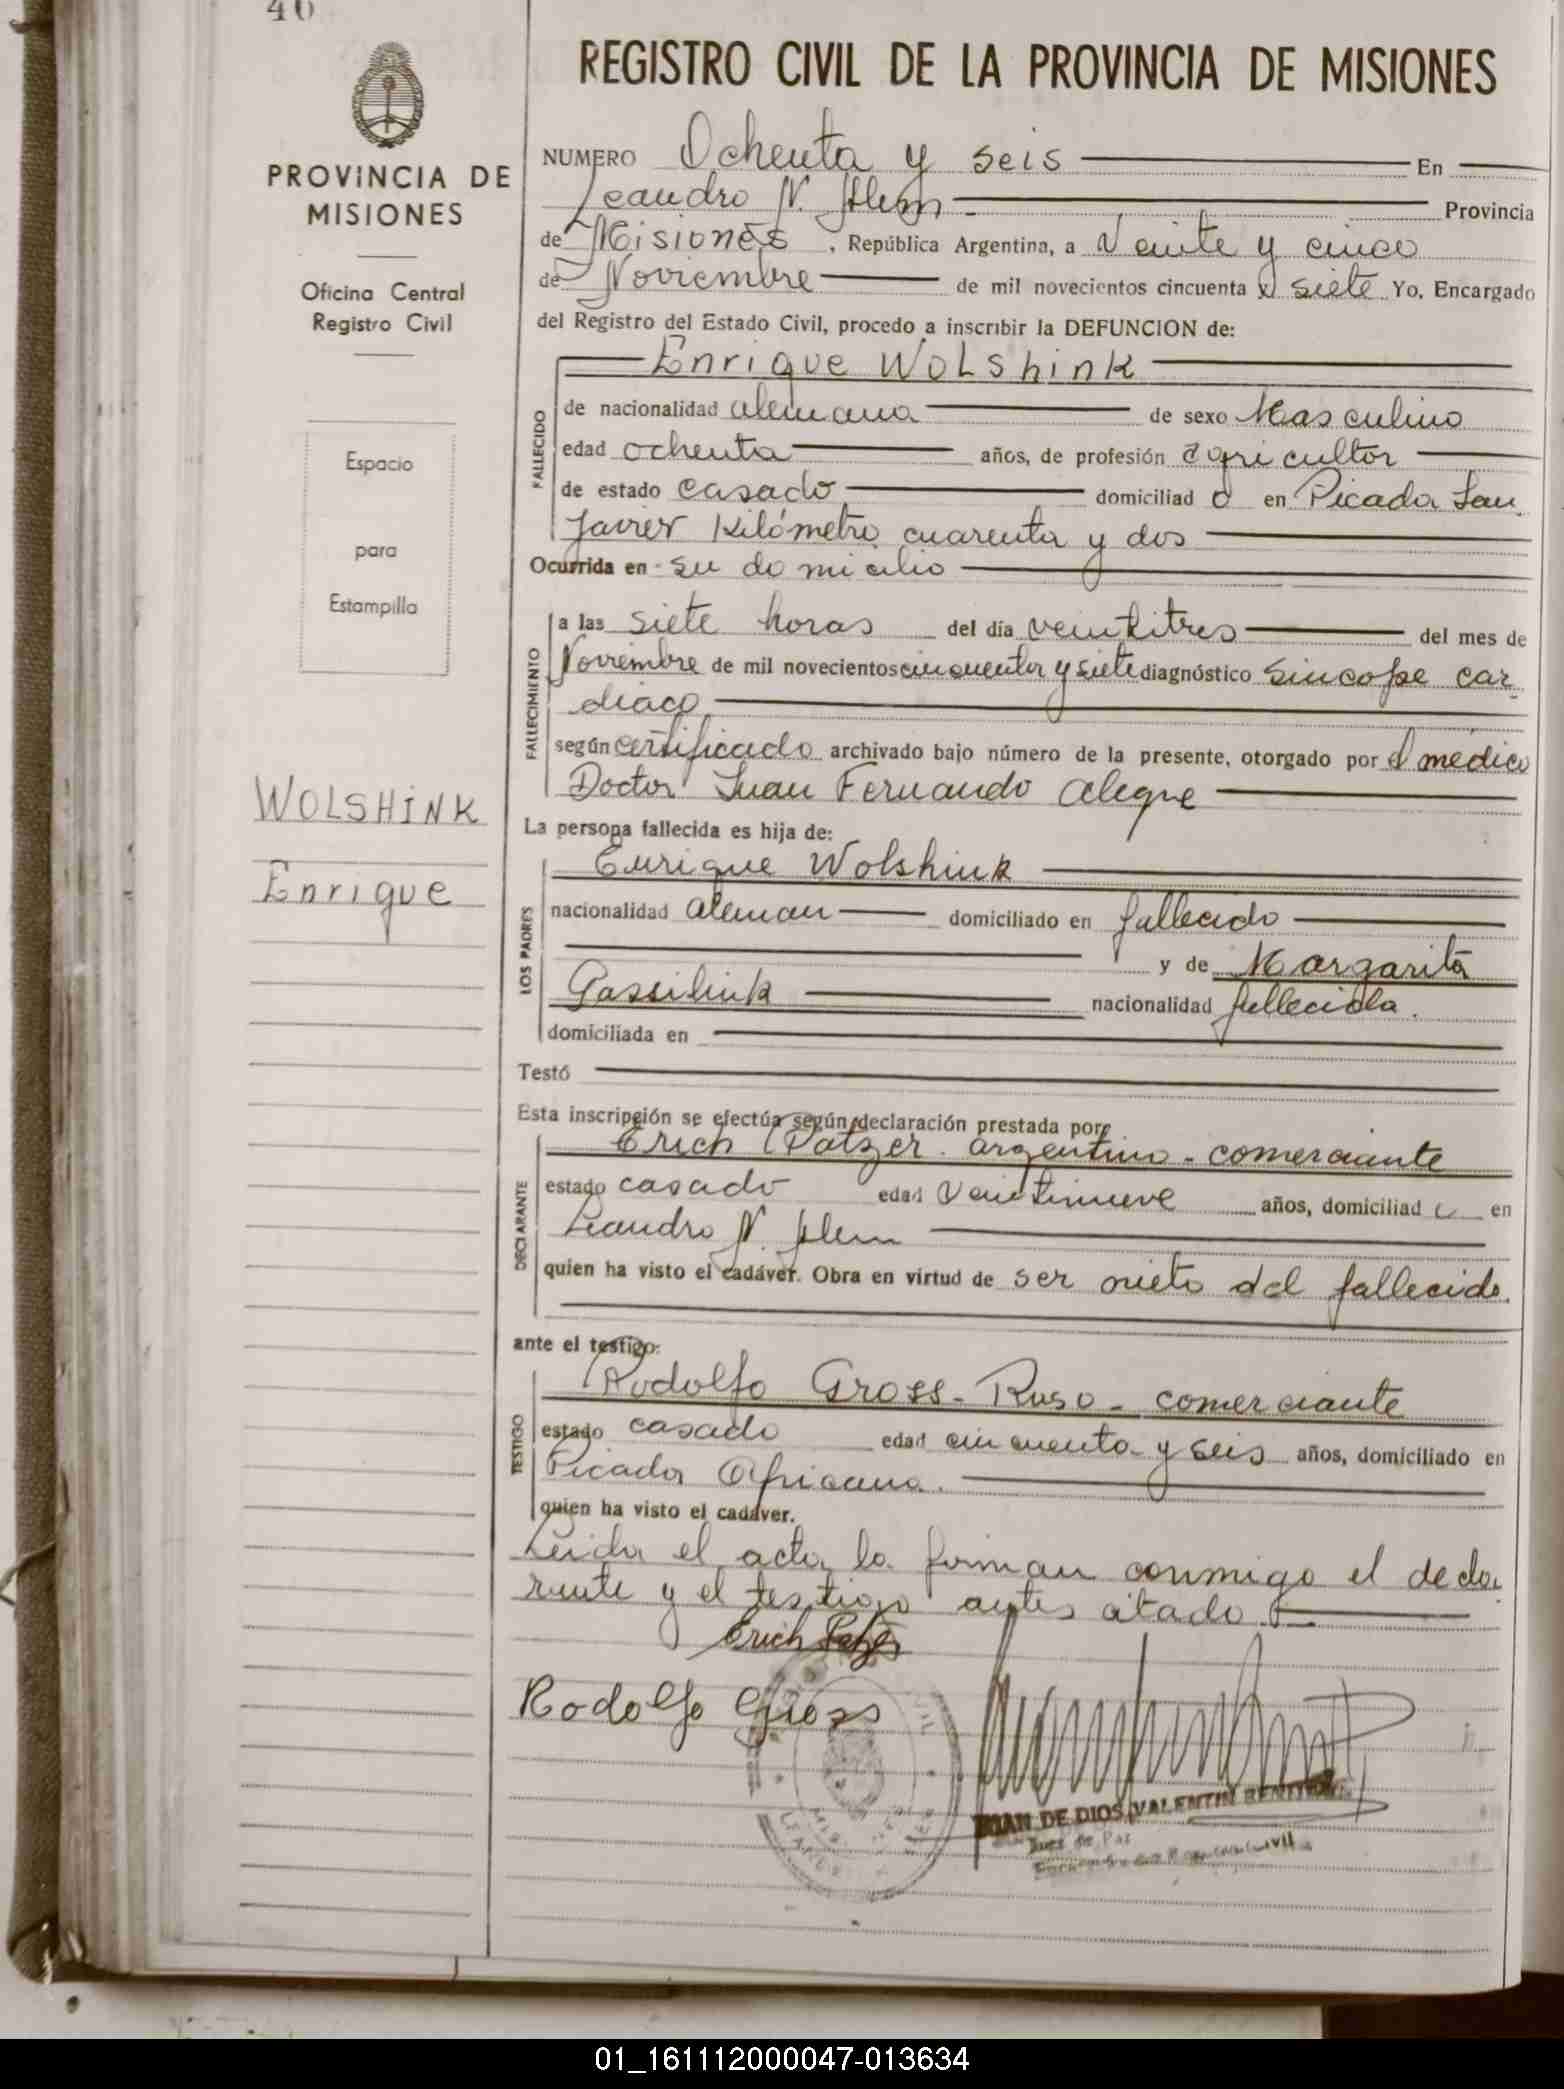 40
PROVINCIA DE
MISIONES
Oficina Central
Registro Civil
Espacio
para
Estampilla
WOLSHINK
Enrique
REGISTRO CIVIL DE LA PROVINCIA DE MISIONES
NUMERO Ochenta y seis En
Leandro N. Alem Provincia
de Misiones, República Argentina, a Veinte y cinco
de Noviembre de mil novecientos cincuenta y siete Yo, Encargado
del Registro del Estado Civil, procedo a inscribir la DEFUNCION de:
Enrique WOLShink
FALLECIDO
de nacionalidad alemana de sexo Masculino
edad ochenta años, de profesión agricultor
de estado casado domiciliad o en Picada San
Javier Kilómetro cuarenta y dos
Ocurrida en su domicilio
FALLECIMIENTO
a las siete horas del día veintitres del mes de
Noviembre de mil novecientos cincuenta y siete diagnóstico Sincope car-
diaco
según certificado archivado bajo número de la presente, otorgado por el médico
Doctor Juan Fernando Alegre
La persona fallecida es hija de:
LOS PADRES
Enrique Wolshink
nacionalidad aleman domiciliado en fallecido
y de Margarita
Gassilink nacionalidad fallecida.
domiciliada en
Testó
Esta inscripción se efectúa según declaración prestada por:
DECLARANTE
Erich Patzer. argentino - comerciante
estado casado edad Veintinueve años, domiciliad o en
Leandro N. Alem
quien ha visto el cadáver. Obra en virtud de ser nieto del fallecido.
ante el testigo:
TESTIGO
Rodolfo Gross - Ruso - comerciante
estado casado edad cincuenta y seis años, domiciliado en
Picada Africana.
quien ha visto el cadáver.
Leida el acta la firman conmigo el decla-
rante y el testigo antes citado.
Erich Patzer
Rodolfo Gross
JUAN DE DIOS VALENTIN BENITEZ
Juez de Paz
01_161112000047-013634